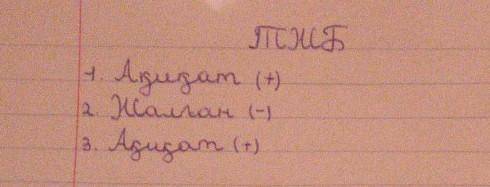 ТЖБ
1. Ақиқат (+)
2. Жалған (-)
3. Ақиқат (+)